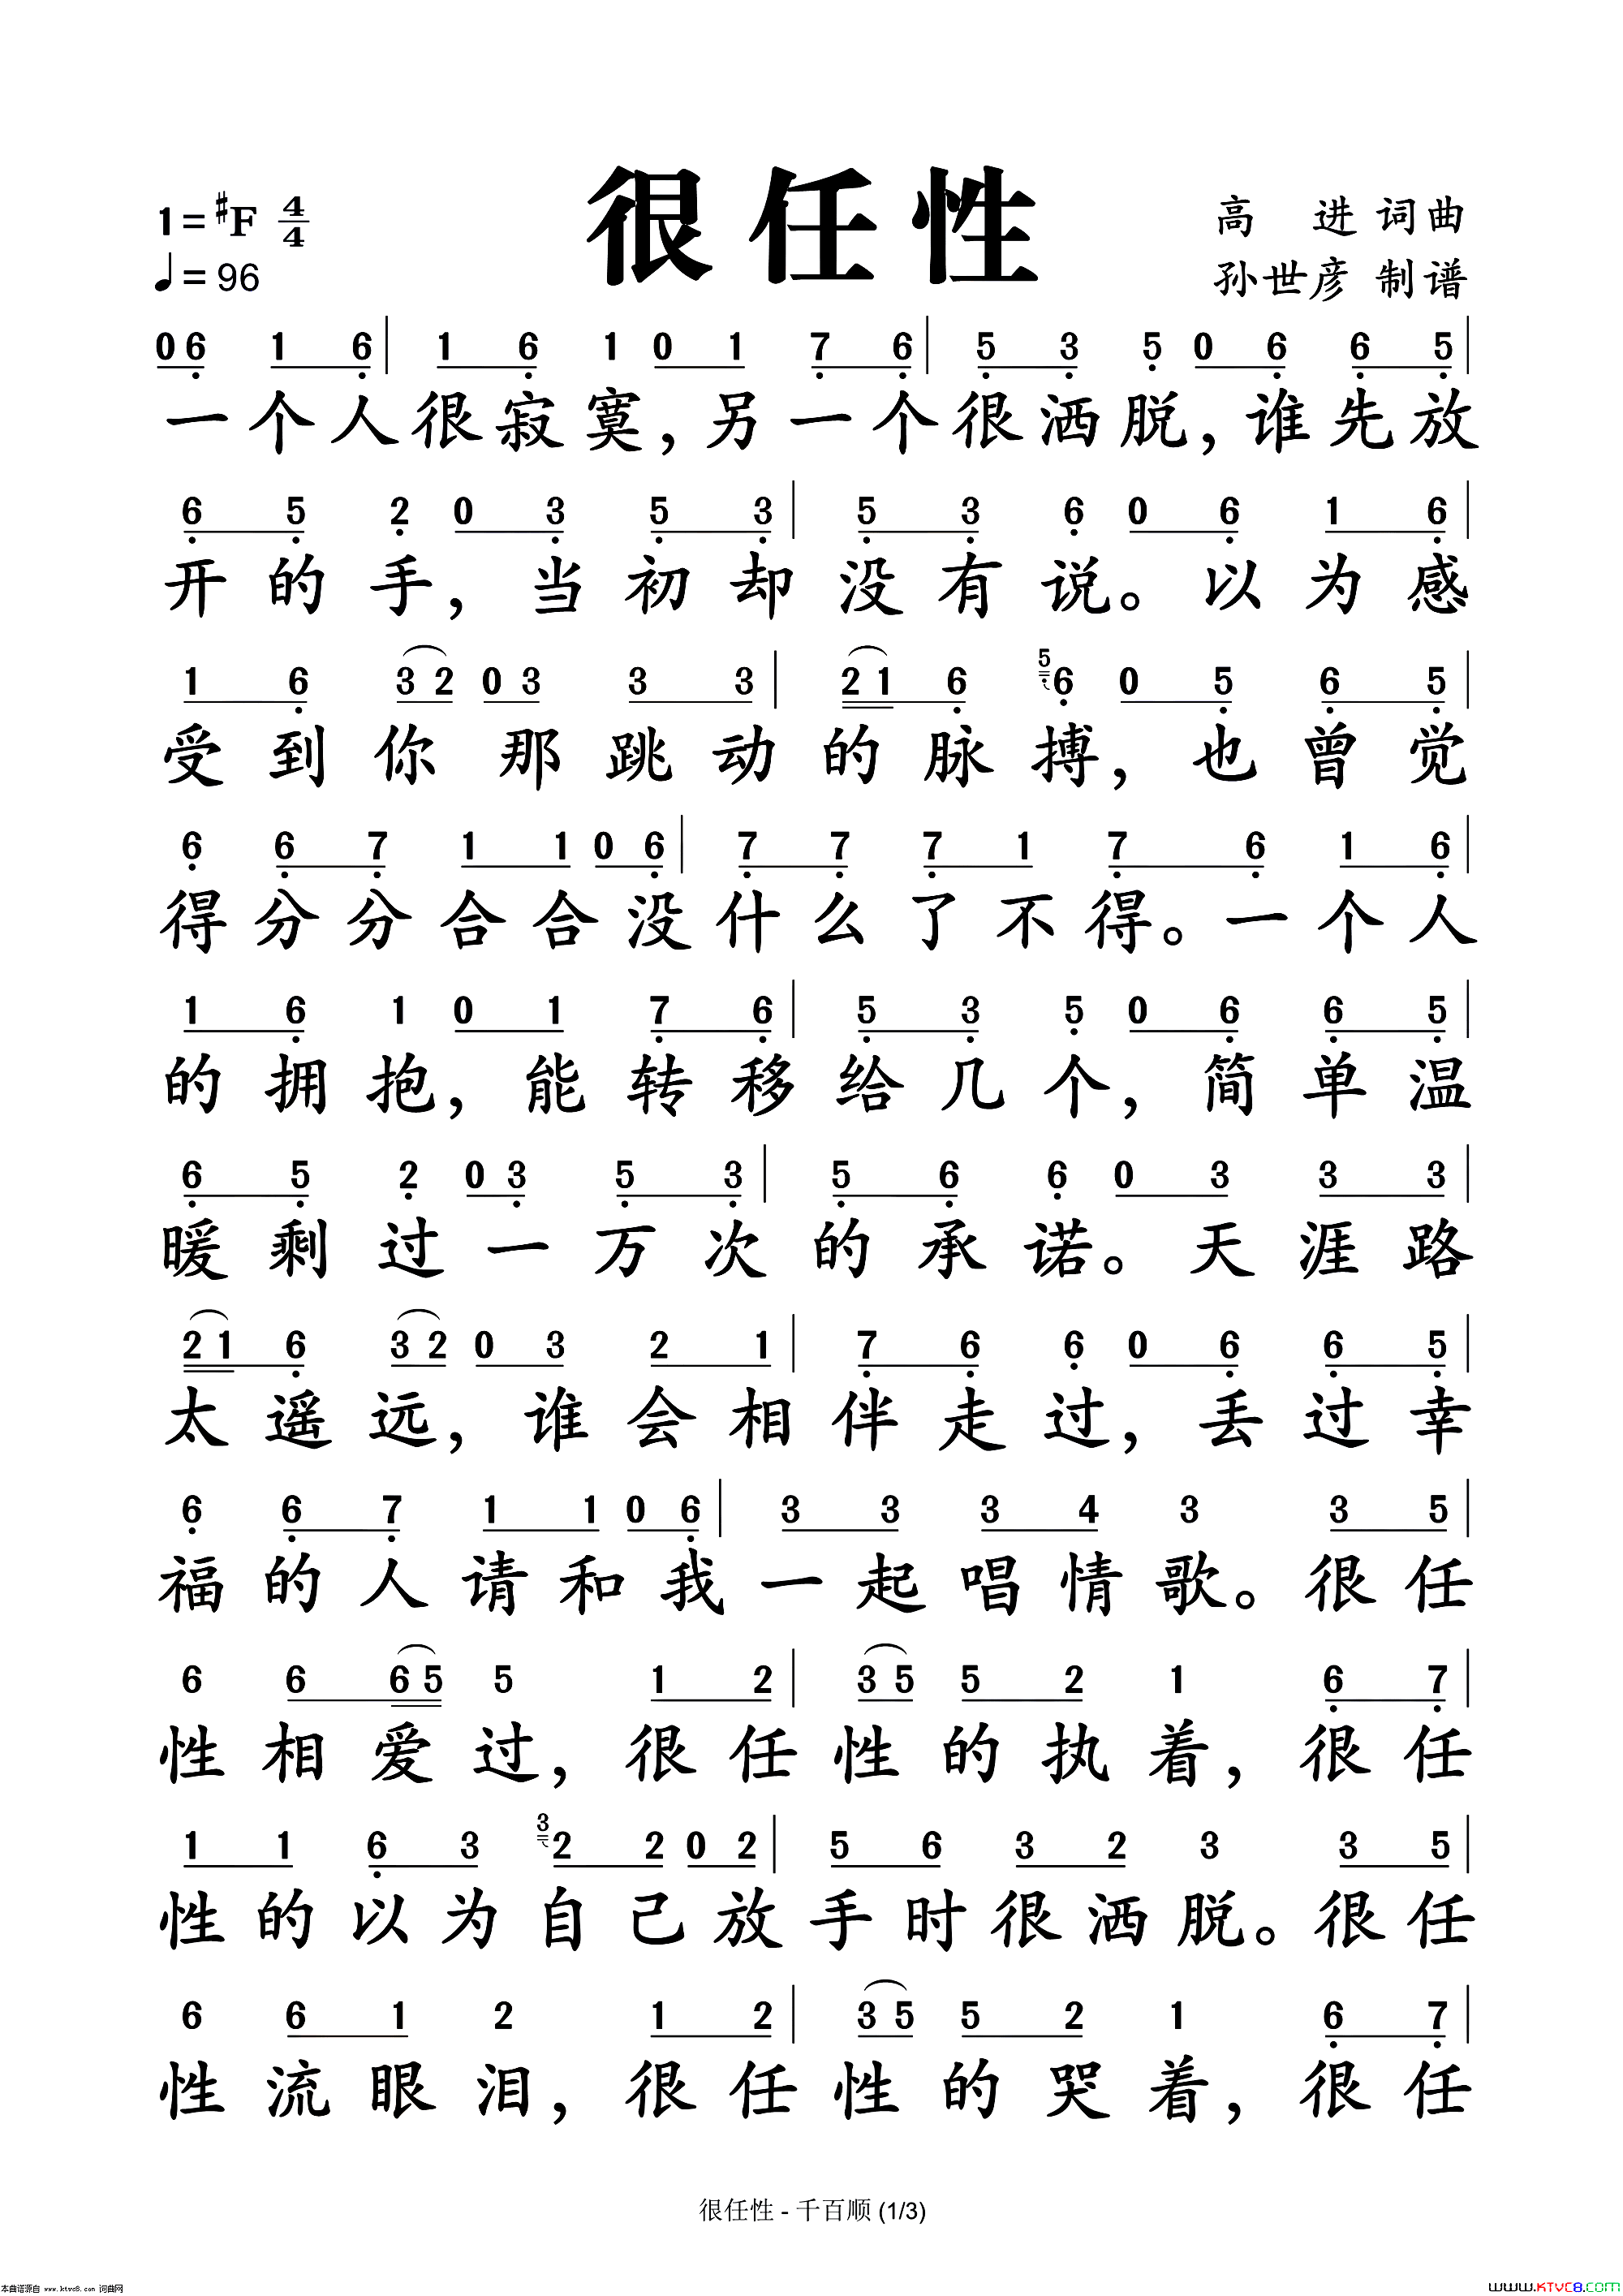 很任性
1=♯F 4/4
高 进 词曲
♩=96
孙世彦 制谱
06 1 6 | 1 6 1 0 1 7 6 | 5 3 5 0 6 6 5 |
一个人很寂寞,另一个很洒脱,谁先放
6 5 2 0 3 5 3 | 5 3 6 0 6 1 6 |
开的手,当初却没有说。以为感
1 6 3 2 0 3 3 3 | 2 1 6 5 6 0 5 6 5 |
受到你那跳动的脉搏,也曾觉
6 6 7 1 1 0 6 | 7 7 7 1 7 6 1 6 |
得分分合合没什么了不得。一个人
1 6 1 0 1 7 6 | 5 3 5 0 6 6 5 |
的拥抱,能转移给几个,简单温
6 5 2 0 3 5 3 | 5 6 6 0 3 3 3 |
暖剩过一万次的承诺。天涯路
2 1 6 3 2 0 3 2 1 | 7 6 6 0 6 6 5 |
太遥远,谁会相伴走过,丢过幸
6 6 7 1 1 0 6 | 3 3 3 4 3 3 5 |
福的人请和我一起唱情歌。很任
6 6 6 5 5 1 2 | 3 5 5 2 1 6 7 |
性相爱过,很任性的执着,很任
1 1 6 3 3 2 2 0 2 | 5 6 3 2 3 3 5 |
性的以为自己放手时很洒脱。很任
6 6 1 2 1 2 | 3 5 5 2 1 6 7 |
性流眼泪,很任性的哭着,很任
很任性 - 千百顺 (1/3)
本曲谱源自 www.ktvc8.com 词曲网
WWW.KTVC8.COM